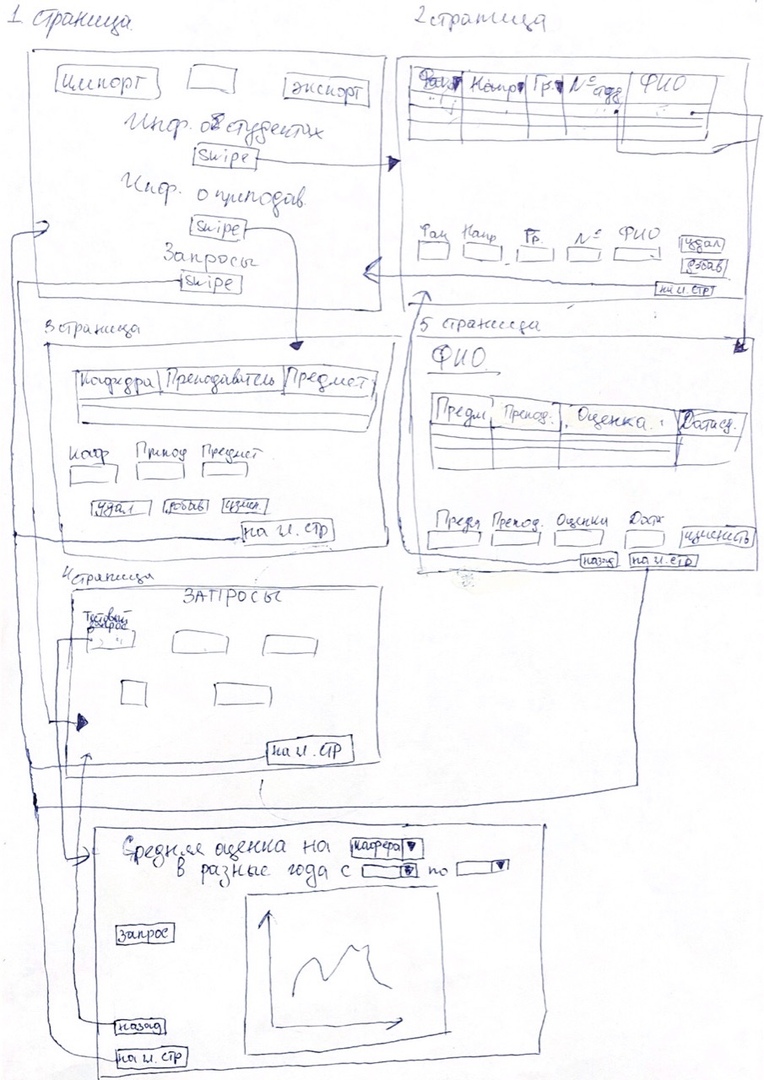 1 страница
2 страница
импорт
экспорт
Инф. о студентах
swipe
Инф. о преподав.
swipe
Запросы
swipe
Фак Напр Гр. № студ ФИО
Фак Напр Гр. № ФИО
удал
добав
на гл. стр
3 страница
Кафедра Преподаватель Предмет
Каф Препод Предмет
удал добав измен.
на гл. стр
5 страница
ФИО
Предм Препод. Оценка Дата сд.
Предм Препод. Оценка Дата
изменить
назад на гл. стр
4 страница
ЗАПРОСЫ
Тестовый
запрос
на гл. стр
Средняя оценка на кафедра
в разные года с по
запрос
назад
на гл. стр